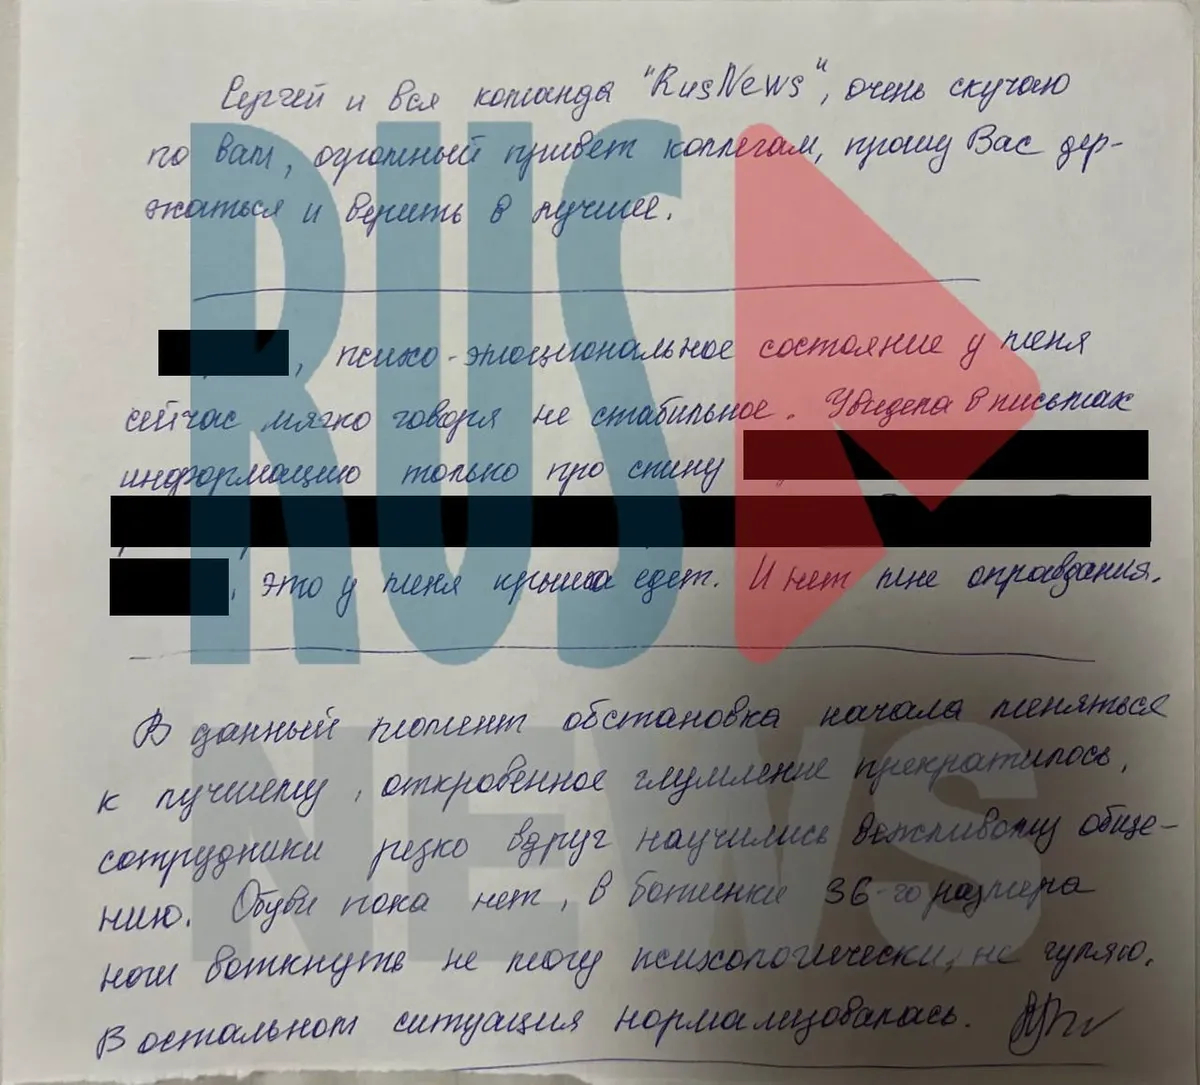 Сергей и вся команда "RusNews", очень скучаю
по вам, огромный привет коллегам, прошу Вас дер-
жаться и верить в лучшее.
, психо-эмоциональное состояние у меня
сейчас мягко говоря не стабильное. Увидела в письмах
информацию только про спину
, это у меня крыша едет. И нет мне оправдания.
В данный момент обстановка начала меняться
к лучшему, откровенное глумление прекратилось,
сотрудники резко вдруг научились вежливому обще-
нию. Обуви пока нет, в ботинки 36-го размера
ноги воткнуть не могу психологически, не гуляю.
В остальном ситуация нормализовалась.
RUS
NEWS